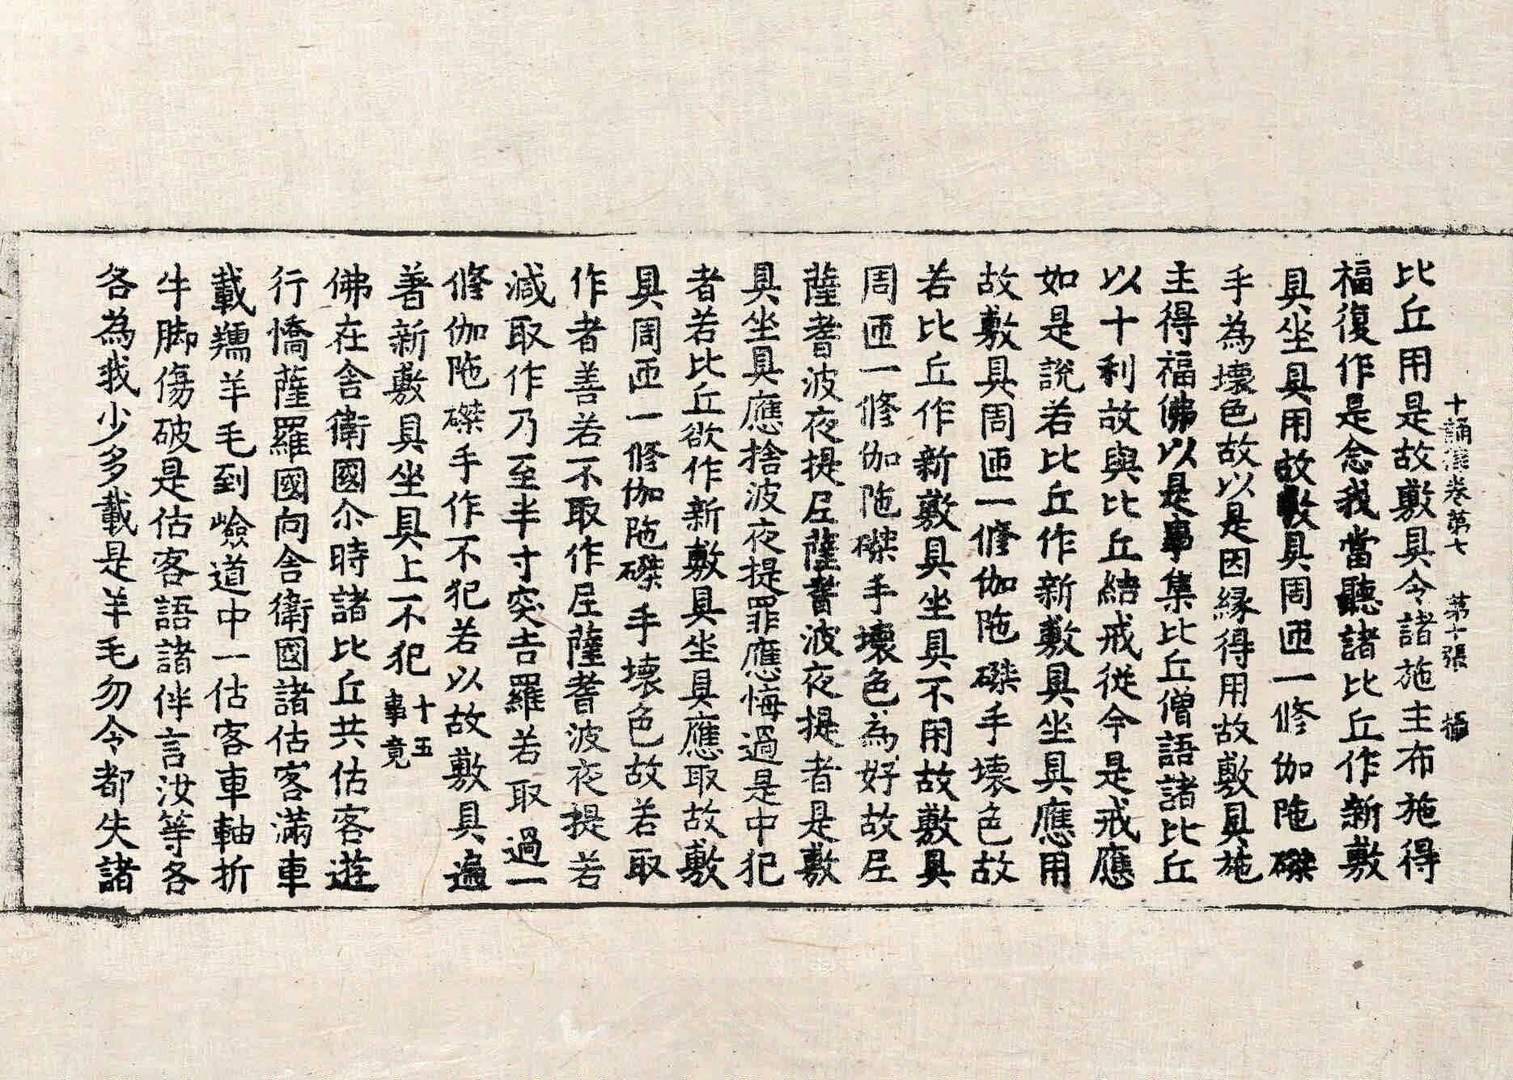 十誦律卷第七 第十張
比丘用是故敷具令諸施主布施得
福復作是念我當聽諸比丘作新敷
具坐具用故敷具周迊一修伽陁磔
手為壞色故以是因縁得用故敷具施
主得福佛以是事集比丘僧語諸比丘
以十利故與比丘結戒從今是戒應
如是說若比丘作新敷具坐具應用
故敷具周迊一修伽陁磔手壞色故
若比丘作新敷具坐具不用故敷具
周迊一修伽陁磔手壞色為好故尼
薩耆波夜提尼薩耆波夜提者是敷
具坐具應捨波夜提罪應悔過是中犯
者若比丘欲作新敷具坐具應取故敷
具周迊一修伽陁磔手壞色故若取
作者善若不取作尼薩耆波夜提若
減取作乃至半寸突吉羅若取過一
修伽陁磔手作不犯若以故敷具遍
著新敷具坐具上不犯十五事竟
佛在舍衛國尒時諸比丘共估客遊
行憍薩羅國向舍衛國諸估客滿車
載羺羊毛到嶮道中一估客車軸折
牛脚傷破是估客語諸伴言汝等各
各為我少多載是羊毛勿令都失諸